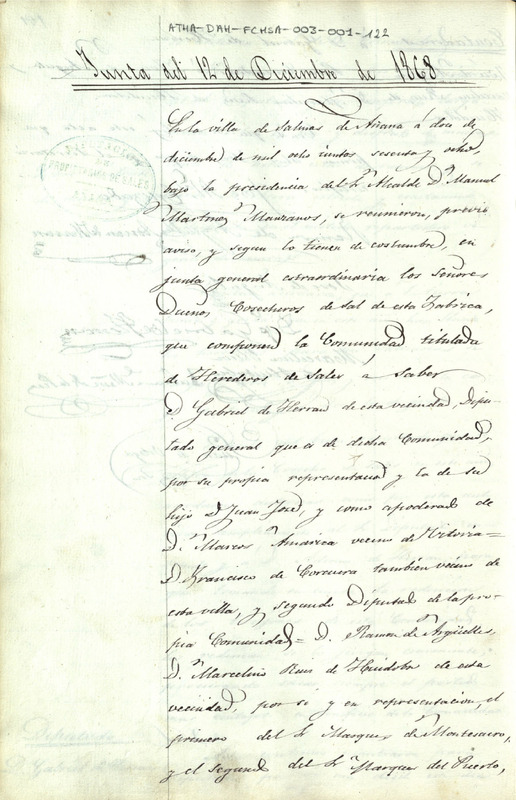 ATHA-DAH-FCHSA-003-001-122
Junta del 12 de Diciembre de 1868
En la villa de Salinas de Añana á doce de
diciembre de mil ocho cientos sesenta y ocho,
bajo la presidencia del Sr. Alcalde Dn. Manuel
Martinez Manzanos, se reunieron, previo
aviso, y segun lo tienen de costumbre, en
junta general estraordinaria los Señores
Dueños Cosecheros de Sal de esta Fabrica,
que componen la Comunidad titulada
de Herederos de Sales á Saber
D. Gabriel de Herran de esta vecindad, Dipu-
tado general que es de dicha Comunidad,
por su propia representacion y la de su
hijo D. Juan José, y como apoderado de
Dn. Marcos Amarica vecino de Vitoria=
D. Francisco de Corcuera tambien vecino de
esta villa, y segundo Diputado de la pro-
pia Comunidad= D. Ramon de Argüelles,
Dn. Marcelino Ruiz de Huidobro de esta
vecindad, por si y en representacion, el
primero del Sr. Marques de Montesacro,
y el segundo del Sr. Marques del Puerto,